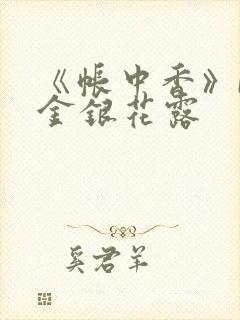 《帐中香》
金银花露
奚君羊